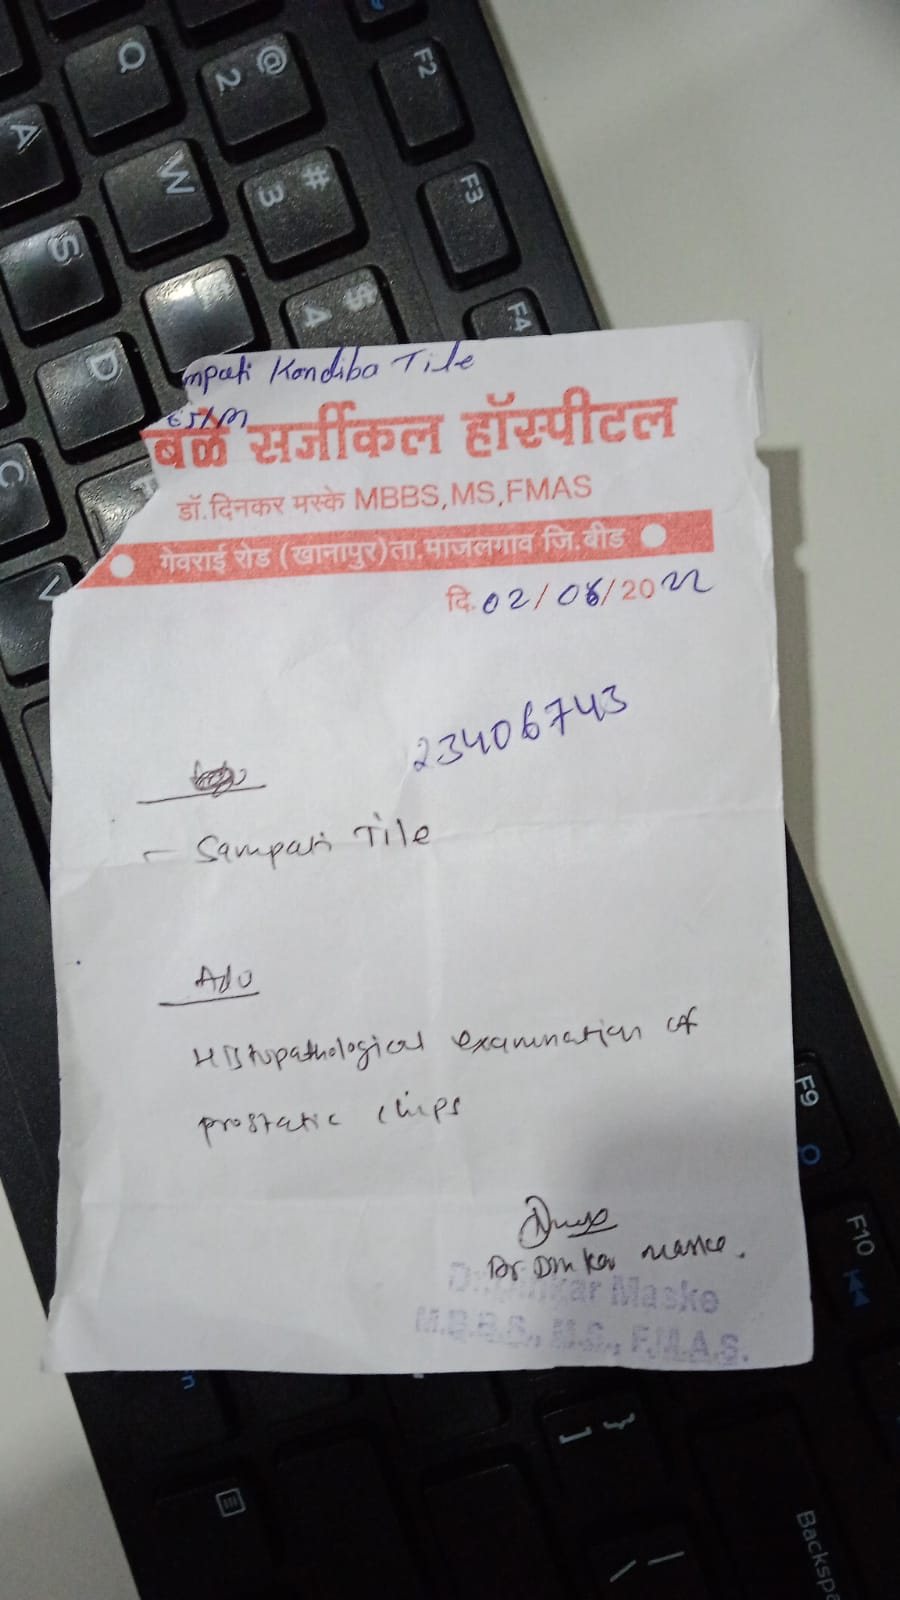 mpati Kondiba Tile
65/M
बळे सर्जीकल हॉस्पीटल
डॉ.दिनकर मस्के MBBS,MS,FMAS
गेवराई रोड (खानापुर)ता.माजलगाव जि.बीड
दि.02/06/2022
23406743
- Sampati Tile
Adv
Histopathological examination of
prostatic chips
Dr Dinkar Maske.
Dr. Dinkar Maske
M.B.B.S., M.S., F.M.A.S.
Q
@
2
F2
A
W
#
3
F3
S
$
4
F4
D
C
V
F9
F10
Backspa